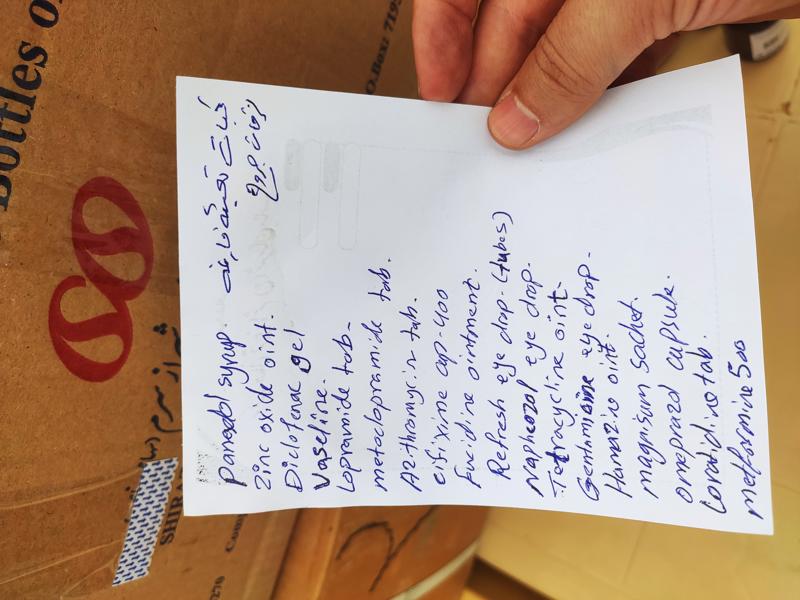 Panadol syrup.
Zinc oxide oint.
Diclofenac gel
Vaseline.
Lopramide tab.
metaclopramide tab.
Azithromycin tab.
cifixime cap-400
Fucidine ointment.
Refresh eye drop (tubes)
Naphazol eye drop.
Tetracycline oint.
Gentamicine eye drop.
Hamazin oint.
magnisum sachet.
omeprazol capsule.
Loratidine tab.
metformine 500
Bottles o
O.Box: 7195
SHIRA
Com
270